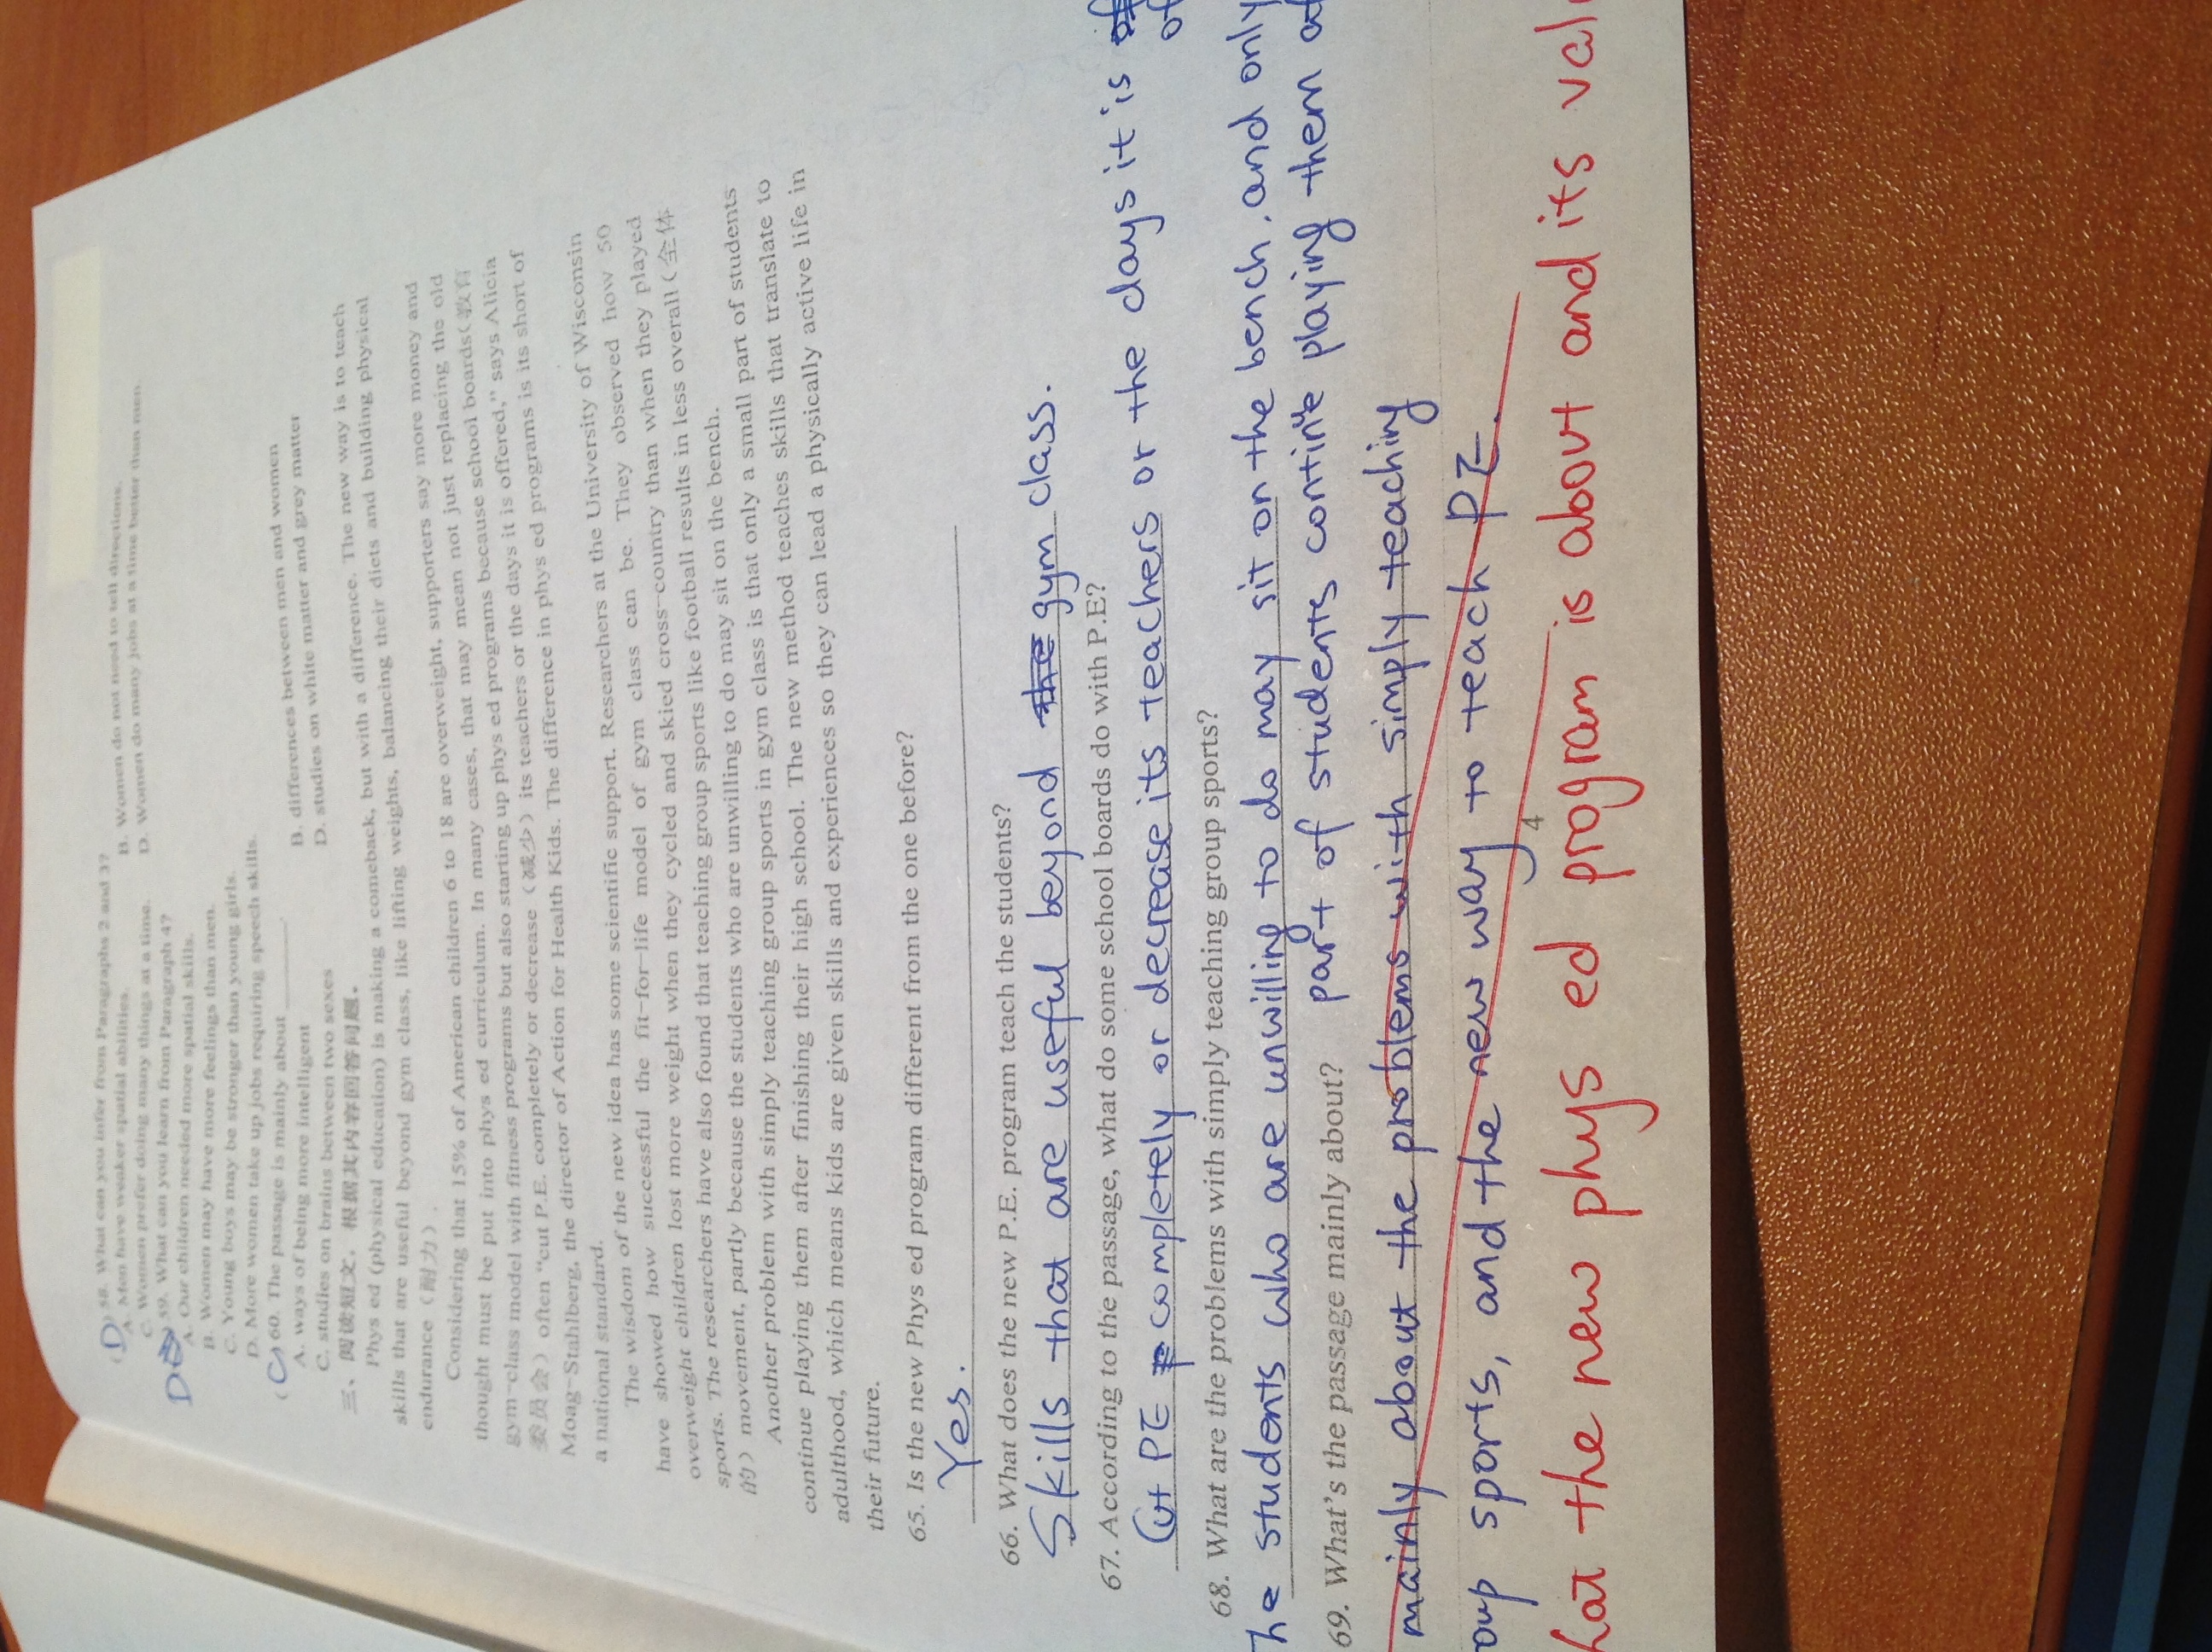 (D) 58. What can you infer from Paragraphs 2 and 3?
A. Men have weaker spatial abilities. B. Women do not need to tell directions.
C. Women prefer doing many things at a time. D. Women do many jobs at a time better than men.
D 59. What can you learn from Paragraph 4?
A. Our children needed more spatial skills.
B. Women may have more feelings than men.
C. Young boys may be stronger than young girls.
D. More women take up jobs requiring speech skills.
(C) 60. The passage is mainly about ________.
A. ways of being more intelligent B. differences between men and women
C. studies on brains between two sexes D. studies on white matter and grey matter
三、阅读短文，根据其内容回答问题。
Phys ed (physical education) is making a comeback, but with a difference. The new way is to teach
skills that are useful beyond gym class, like lifting weights, balancing their diets and building physical
endurance（耐力）.
Considering that 15% of American children 6 to 18 are overweight, supporters say more money and
thought must be put into phys ed curriculum. In many cases, that may mean not just replacing the old
gym-class model with fitness programs but also starting up phys ed programs because school boards（教育
委员会）often “cut P.E. completely or decrease（减少）its teachers or the days it is offered,” says Alicia
Moag-Stahlberg, the director of Action for Health Kids. The difference in phys ed programs is its short of
a national standard.
The wisdom of the new idea has some scientific support. Researchers at the University of Wisconsin
have showed how successful the fit-for-life model of gym class can be. They observed how 50
overweight children lost more weight when they cycled and skied cross-country than when they played
sports. The researchers have also found that teaching group sports like football results in less overall（全体
的）movement, partly because the students who are unwilling to do may sit on the bench.
Another problem with simply teaching group sports in gym class is that only a small part of students
continue playing them after finishing their high school. The new method teaches skills that translate to
adulthood, which means kids are given skills and experiences so they can lead a physically active life in
their future.
65. Is the new Phys ed program different from the one before?
Yes.
66. What does the new P.E. program teach the students?
Skills that are useful beyond the gym class.
67. According to the passage, what do some school boards do with P.E?
Cut PE completely or decrease its teachers or the days it is
of
68. What are the problems with simply teaching group sports?
he students who are unwilling to do may sit on the bench, and only
part of students continue playing them
69. What's the passage mainly about?
mainly about the problems with simply teaching
oup sports, and the new way to teach PE.
4
hat the new phys ed program is about and its val